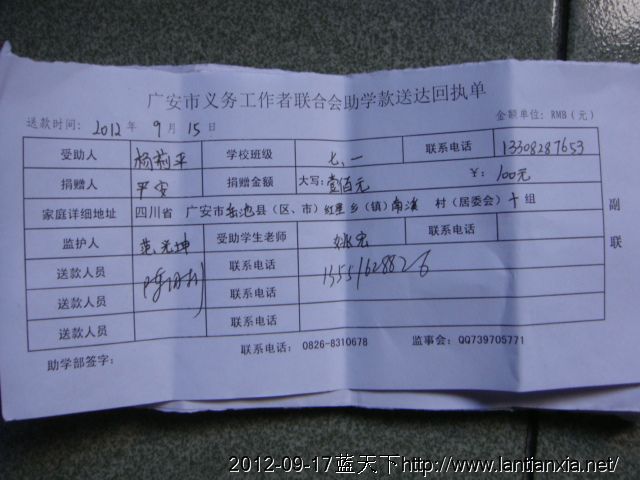 广安市义务工作者联合会助学款送达回执单
送款时间: 2012 年 9 月 15 日 金额单位: RMB (元)
受助人 杨莉平 学校班级 七、一 联系电话 13308287653
捐赠人 平安 捐赠金额 大写: 壹佰元 ¥: 100元
家庭详细地址 四川省 广安市岳池县 (区、市) 红星乡 (镇) 南溪 村 (居委会) 十 组
监护人 范光坤 受助学生老师 姚宏 联系电话
送款人员 联系电话 13551628826
送款人员 联系电话
送款人员 联系电话
助学部签字: 联系电话: 0826-8310678 监事会: QQ739705771
副联
2012-09-17蓝天下http://www.lantianxia.net/